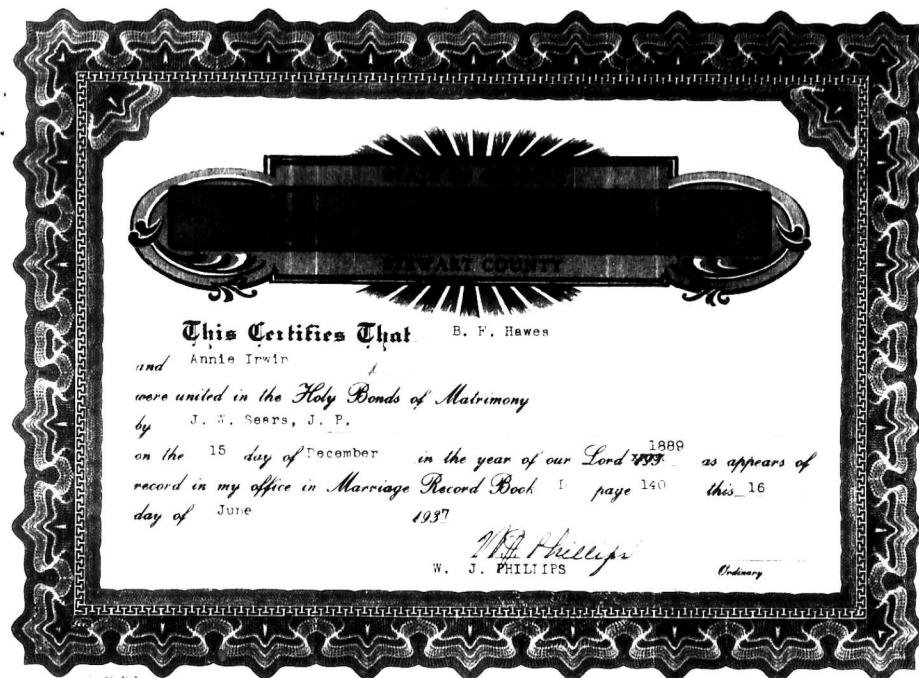 STEWART COUNTY
This Certifies That B. F. Hawes
and Annie Irwin
were united in the Holy Bonds of Matrimony
by J. W. Sears, J. P.
on the 15 day of December in the year of our Lord 1889 as appears of
record in my office in Marriage Record Book I page 140 this 16
day of June 1937
W. J. Phillips
W. J. PHILLIPS Ordinary